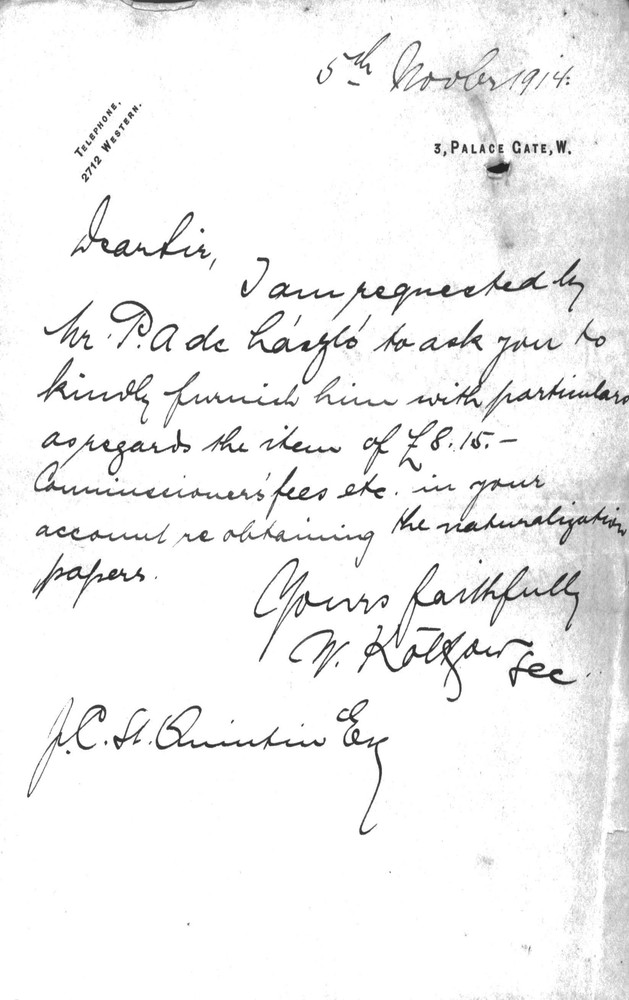 5th Novber 1914.
TELEPHONE.
2712 WESTERN.
3, PALACE GATE, W.
Dear Sir,
I am requested by
Mr. P. A de László to ask you to
kindly furnish him with particulars
as regards the item of £8.15.-
Commissioners' fees etc. in your
account re obtaining the naturalization
papers.
Yours faithfully
W. Sec.
J. C. St. Quintin Esq